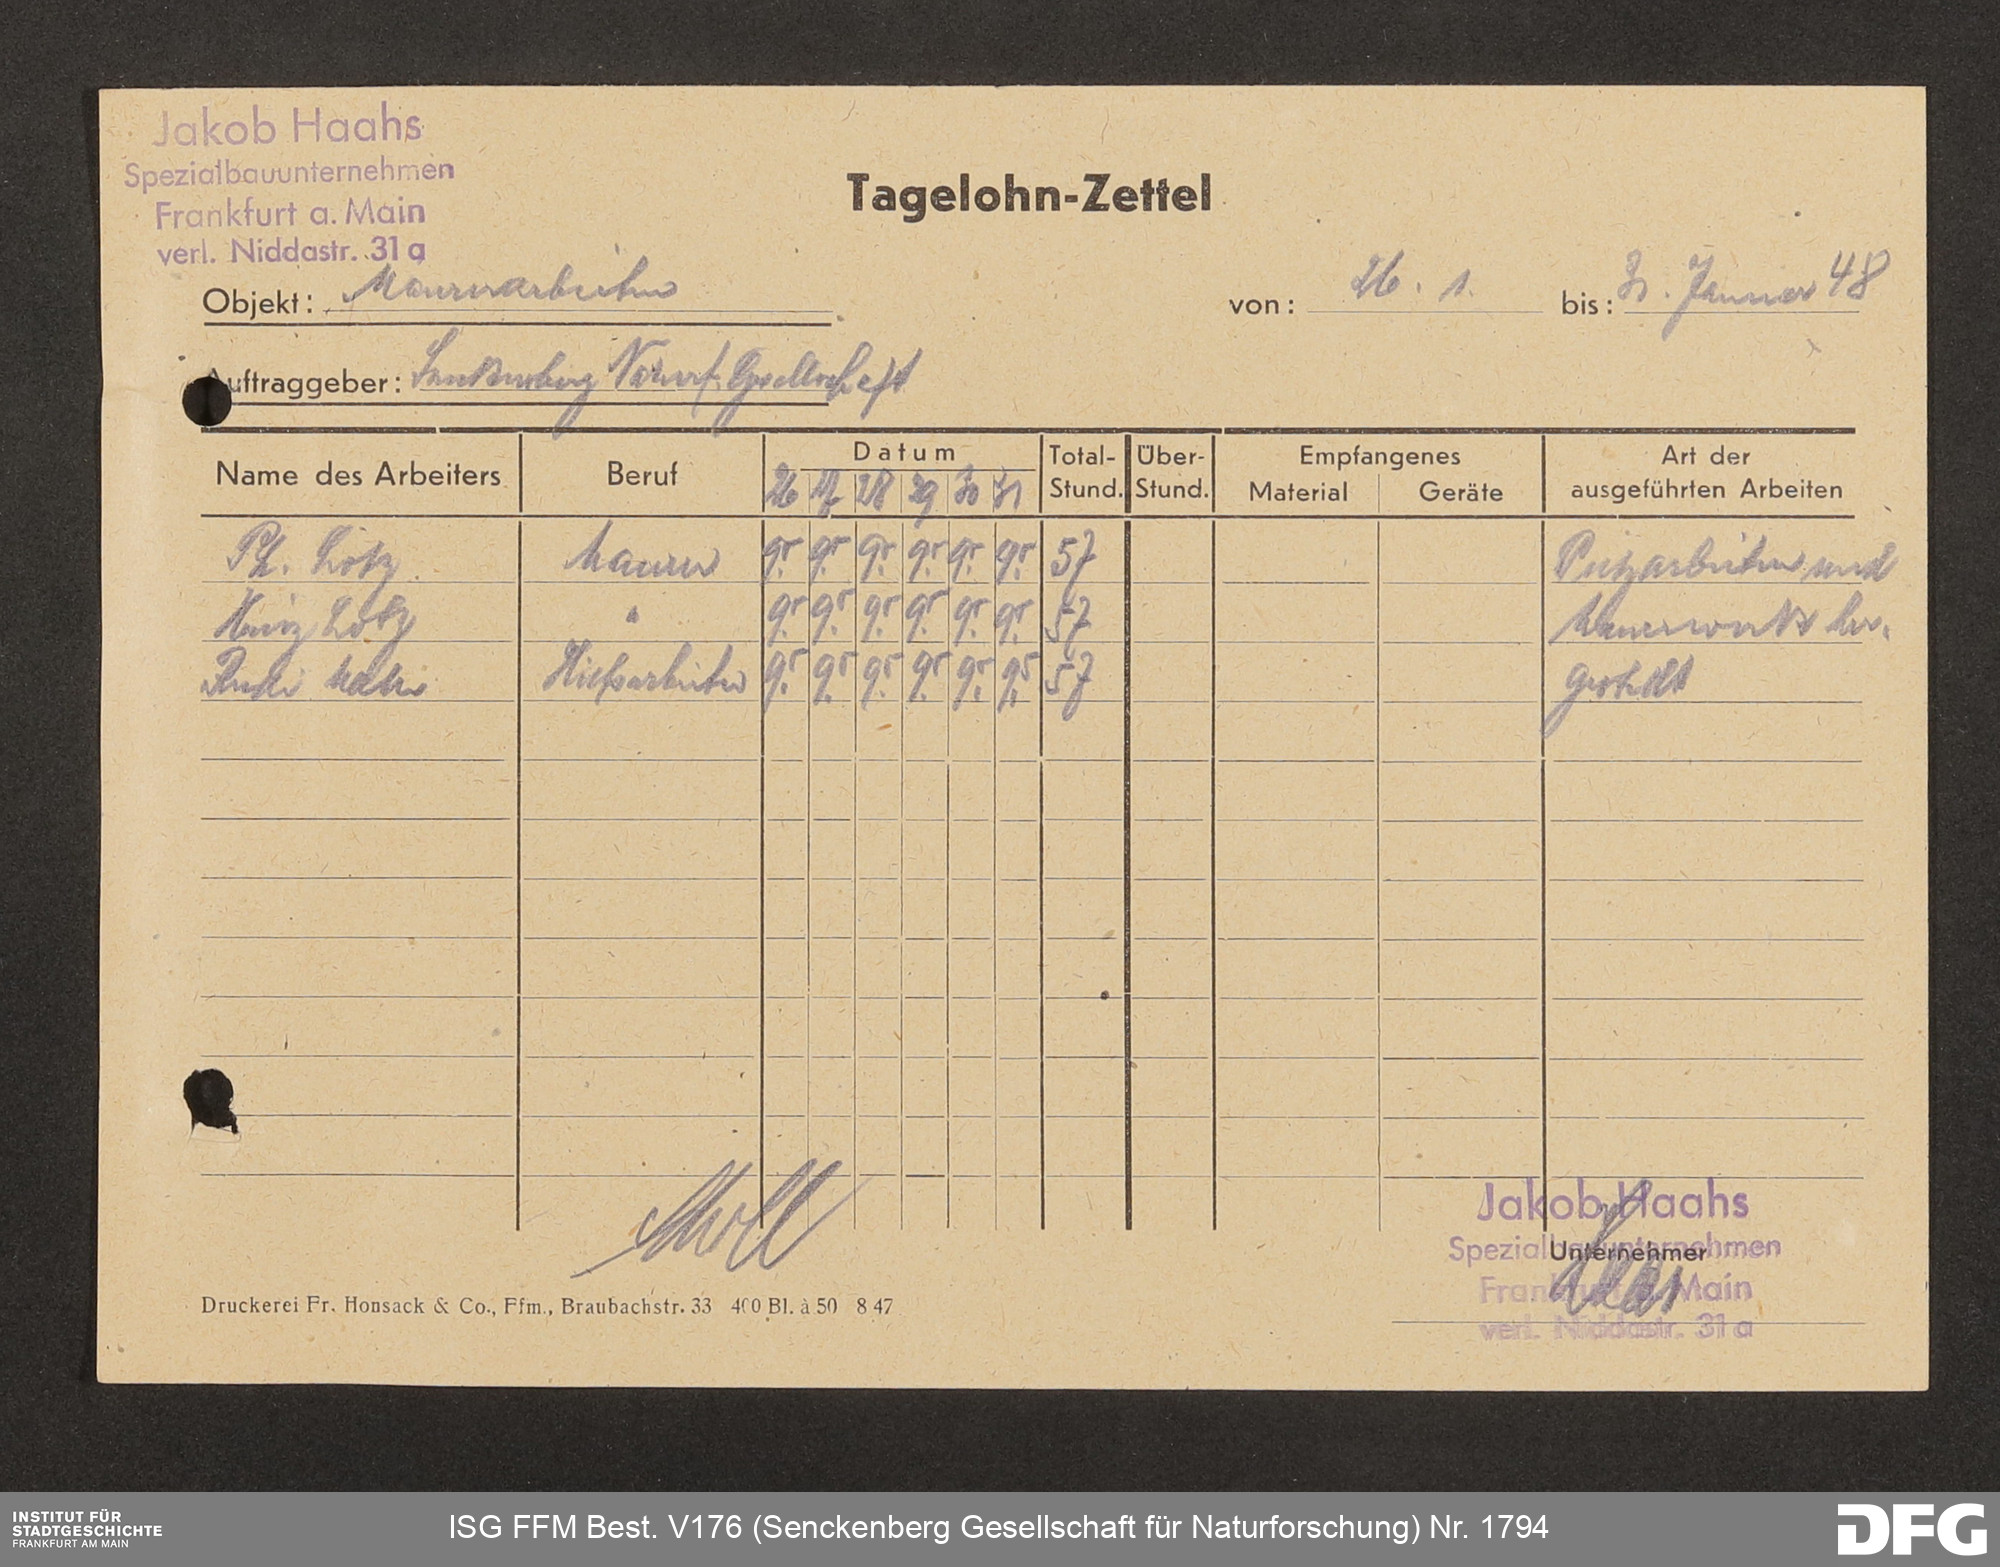 Jakob Haahs
Spezialbauunternehmen
Frankfurt a. Main
verl. Niddastr. 31 a
Tagelohn-Zettel
Objekt: Maurerarbeiten
von: 26. 1. bis: 31. Januar 48
Auftraggeber: Senckenberg Naturf. Gesellschaft
Name des Arbeiters Beruf Datum Total-Stund. Über-Stund. Empfangenes Material Geräte Art der ausgeführten Arbeiten
26 27 28 29 30 31
Ph. Lotz Maurer 9.5 9.5 9.5 9.5 9.5 9.5 57 Putzarbeiten und
Heinz Lotz " 9.5 9.5 9.5 9.5 9.5 9.5 57 Mauerwerk her-
Hilfsarbeiter 9.5 9.5 9.5 9.5 9.5 9.5 57 gestellt
Moll
Jakob Haahs
Spezialbauunternehmen
Unternehmer
Frankfurt a. Main
verl. Niddastr. 31 a
Druckerei Fr. Honsack & Co., Ffm., Braubachstr. 33 400 Bl. à 50 8 47
INSTITUT FÜR
STADTGESCHICHTE
FRANKFURT AM MAIN
ISG FFM Best. V176 (Senckenberg Gesellschaft für Naturforschung) Nr. 1794
DFG